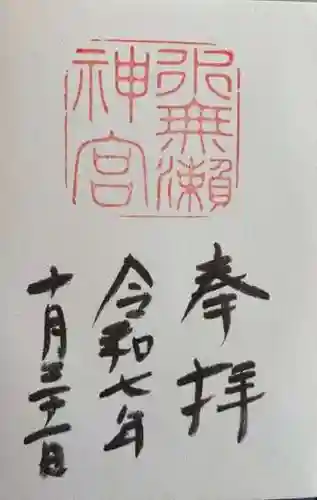 水無瀬
神宮
奉拝
令和七年
十月三十一日